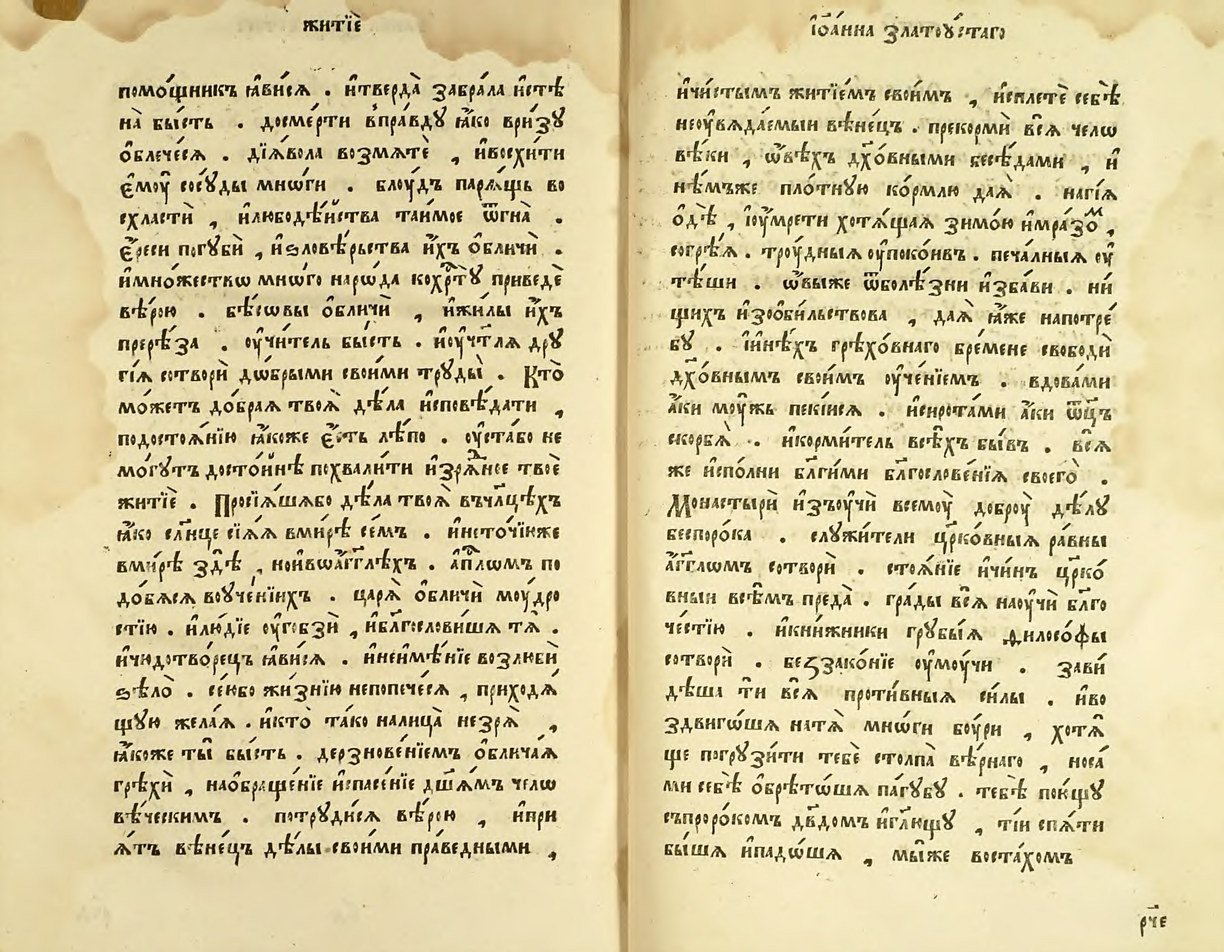 житїѐ
помо́щникъ ꙗ҆ви́сѧ . и҆тверда̀ забра́ла и҆стѣ
на̀ бы́сть . досме́рти впра́вдꙋ ꙗ҆́ко ври́зꙋ
ѡ҆блече́сѧ . дїѧ́вола возмѧтѐ , и҆восхи́ти
є҆моу̀ сосꙋ́ды мнѡ́ги . блоу́дъ парѧ́щь во
сxластѝ , и҆любодѣ́йства таи́мое ѿгна̀ .
є҆́реси погꙋбѝ , и҆ѕловѣ́рьства и҆́хъ ѡ҆бличѝ .
и҆мно́жествѡ мнѡ́го нарѡ́да кохрⷭ҇тꙋ̀ приведѐ
вѣ́рою . бѣ́сѡвы ѡ҆бличѝ , и҆жи́лы и҆́хъ
прерѣ́за . оу҆чи́тель бы́сть . и҆оу҆чт҃лѧ дрꙋ
гі́ѧ сотворѝ дѡ́брыми свои́ми трꙋды̀ . Кто̀
мо́жетъ до́браѧ твоѧ̀ дѣ́ла и҆сповѣ́дати ,
подостоѧ́нїю ꙗ҆́коже є҆́сть лѣ́по . оу҆ста́бо не
мо́гꙋтъ досто́йнѣ похвали́ти и҆зрѧ́дное твоѐ
житїѐ . Просїѧ́шѧбо дѣ́ла твоѧ̀ въчл҃цѣхъ
ꙗ҆́ко сл҃нце сїѧ́ѧ вми́рѣ се́мъ . и҆несто́чїюже
вми́рѣ здѣ̀ , нои҆вѡа҆́гг҃лѣхъ . а҆пⷭ҇лѡмъ по
до́бѧсѧ воу҆че́нїихъ . царѧ̀ ѡ҆бличѝ моу́дро
стїю . и҆лю́дїе оу҆гобзѝ , и҆бл҃гослови́шѧ тѧ̀ .
и҆чюдотво́рецъ ꙗ҆ви́сѧ . и҆неимѣ́нїе возлюбѝ
ѕѣло̀ . се́юбо жи́знїю непопече́сѧ , приходѧ́
щꙋю жела́ѧ . и҆кто̀ та́ко налица̀ незрѧ̀ ,
ꙗ҆́коже ты̀ бы́сть . дерзнове́нїемъ ѡ҆блича́ѧ
грѣхѝ , наѡбраще́нїе и҆спасе́нїе дш҃ѧ́мъ челѡ
вѣ́ческимъ . потрꙋди́сѧ вѣ́рою , и҆при
ѧ́тъ вѣне́цъ дѣ́лы свои́ми пра́ведными ,
і҆ѡа́нна златоу́стаго
и҆чи́стымъ житїе́мъ свои́мъ , и҆сплетѐ себѣ̀
неоу҆вѧда́емыи вѣне́цъ . прекормѝ всѧ̀ челѡ
вѣ́ки , ѡ҆вѣ́хъ дх҃о́вными бесѣ́дами , и҆
нѣ́мъже пло́тнꙋю ко́рмлю даѧ̀ . нагі́ѧ
ѡ҆дѣ̀ , і҆оу҆мре́ти хотѧ́щаѧ зимо́ю и҆мра́зоⷨ ,
согрѣ́ѧ . троу́дныѧ оу҆поко́ивъ . печа́лныѧ оу҆
тѣ́ши . ѡ҆выже ѿболѣ́зни и҆зба́ви . ни
щихъ и҆зоби́льствова , даѧ̀ ꙗ҆́же напотре́
бꙋ . і҆и҆нѣ́хъ грѣхо́внаго бре́мене свободѝ
дх҃о́внымъ свои́мъ оу҆че́нїемъ . вдова́ми
а҆́ки моу́жь пекі́исѧ . и҆сирота́ми а҆́ки ѻ҆ц҃ъ
скорбѧ̀ . и҆корми́тель всѣ́хъ бы́въ . всѧ̀
же и҆спо́лни бл҃ги́ми бл҃гослове́нїѧ своего̀ .
Монастырѝ и҆зъоу҆чѝ всемоу̀ доброу̀ дѣ́лꙋ
беспоро́ка . слꙋжи́тели цр҃ко́вныѧ ра́вны
а҆́гг҃лѡмъ сотворѝ . стоѧ́нїе и҆чи́нъ цр҃ко́
вныи всѣ́мъ преда̀ . гра́ды всѧ̀ наоу҆чѝ бл҃го
че́стїю . и҆кни́жники грꙋбы́ѧ філосо́фы
сотворѝ . беззако́нїе оу҆моучи . зави́
дѣша тѝ всѧ̀ проти́вныѧ си́лы . и҆во
здвиго́шѧ натѧ̀ мнѡ́ги боу́ри , хотѧ́
ще погрꙋзи́ти тебѐ столпа̀ вѣ́рнаго , носа́
ми себѣ̀ ѡ҆брѣто́шѧ па́гꙋбꙋ . тебѣ̀ пою́щꙋ
съпроро́комъ дв҃домъ и҆гл҃ющꙋ , ті́и спѧ́ти
бы́шѧ и҆падо́шѧ , мы́же воста́хомъ
рч҃е